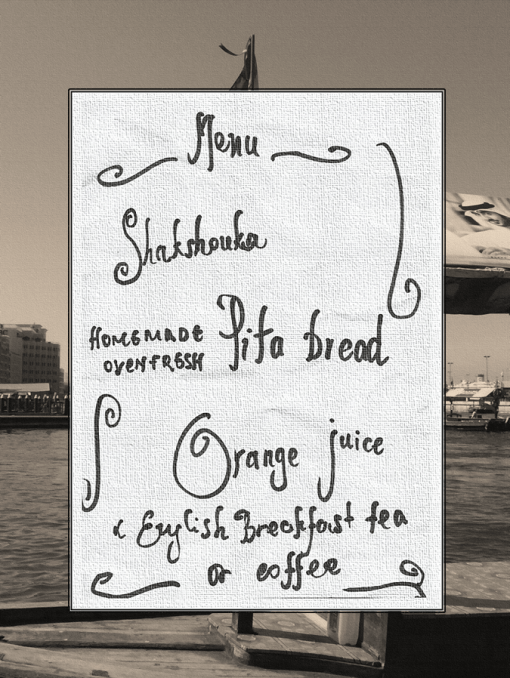 Menu
Shakshouka
HOMEMADE Pita bread
OVENFRESH
Orange juice
& English Breakfast tea
or coffee